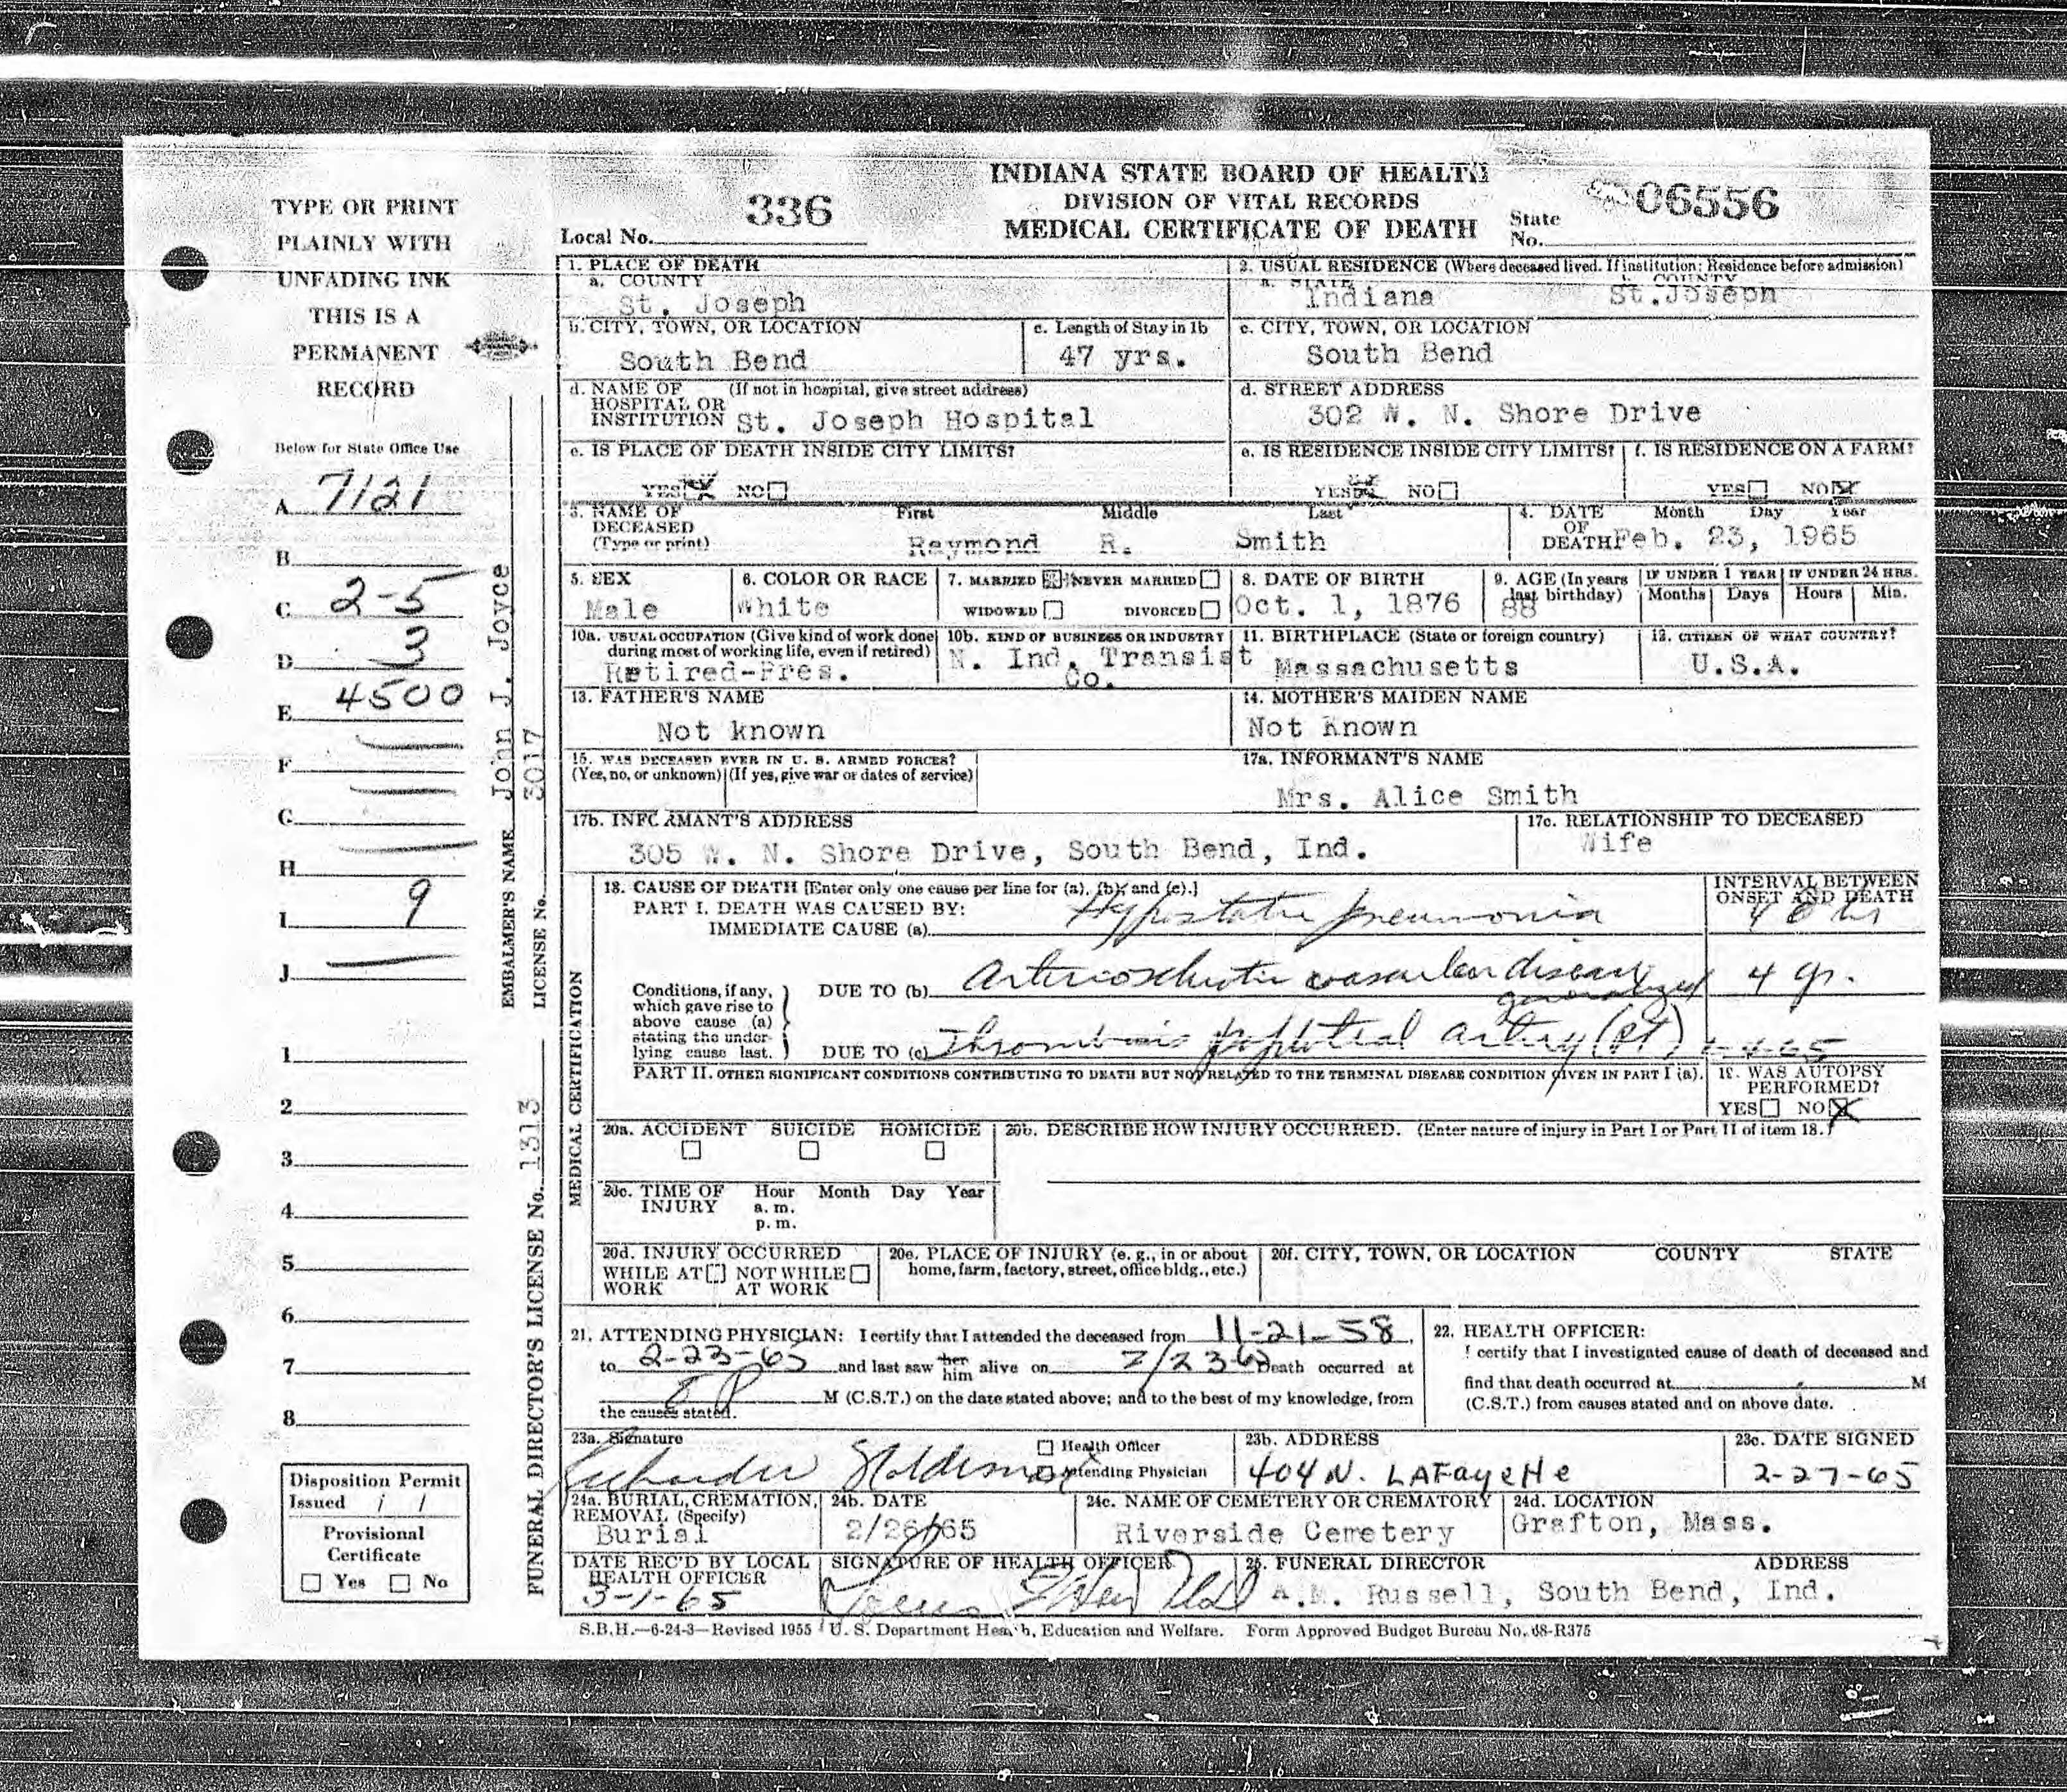 INDIANA STATE BOARD OF HEALTH
DIVISION OF VITAL RECORDS
MEDICAL CERTIFICATE OF DEATH
Local No. 336
State No. 06556
TYPE OR PRINT
PLAINLY WITH
UNFADING INK
THIS IS A
PERMANENT
RECORD
Below for State Office Use
A. 7121
B.
C. 2-5
D. 3
E. 4500
F.
G.
H.
I. 9
J.
1.
2.
3.
4.
5.
6.
7.
8.
Disposition Permit
Issued / /
Provisional
Certificate
Yes No
EMBALMER'S NAME John J. Joyce
LICENSE No. 3017
FUNERAL DIRECTOR'S LICENSE No. 1313
1. PLACE OF DEATH
a. COUNTY
St. Joseph
2. USUAL RESIDENCE (Where deceased lived. If institution: Residence before admission)
a. STATE b. COUNTY
Indiana St.Joseph
b. CITY, TOWN, OR LOCATION
South Bend
c. Length of Stay in 1b
47 yrs.
c. CITY, TOWN, OR LOCATION
South Bend
d. NAME OF (If not in hospital, give street address)
HOSPITAL OR
INSTITUTION St. Joseph Hospital
d. STREET ADDRESS
302 W. N. Shore Drive
e. IS PLACE OF DEATH INSIDE CITY LIMITS?
YES NO
e. IS RESIDENCE INSIDE CITY LIMITS?
YES NO
f. IS RESIDENCE ON A FARM?
YES NO
3. NAME OF First Middle Last
DECEASED
(Type or print) Raymond R. Smith
4. DATE Month Day Year
OF
DEATH Feb. 23, 1965
5. SEX
Male
6. COLOR OR RACE
White
7. MARRIED NEVER MARRIED
WIDOWED DIVORCED
8. DATE OF BIRTH
Oct. 1, 1876
9. AGE (In years
last birthday)
88
IF UNDER 1 YEAR IF UNDER 24 HRS.
Months Days Hours Min.
10a. USUAL OCCUPATION (Give kind of work done
during most of working life, even if retired)
Retired-Pres.
10b. KIND OF BUSINESS OR INDUSTRY
N. Ind. Transist
Co.
11. BIRTHPLACE (State or foreign country)
Massachusetts
12. CITIZEN OF WHAT COUNTRY?
U.S.A.
13. FATHER'S NAME
Not known
14. MOTHER'S MAIDEN NAME
Not Known
15. WAS DECEASED EVER IN U. S. ARMED FORCES?
(Yes, no, or unknown) (If yes, give war or dates of service)
17a. INFORMANT'S NAME
Mrs. Alice Smith
17b. INFORMANT'S ADDRESS
305 W. N. Shore Drive, South Bend, Ind.
17c. RELATIONSHIP TO DECEASED
Wife
MEDICAL CERTIFICATION
18. CAUSE OF DEATH [Enter only one cause per line for (a), (b), and (c).]
PART I. DEATH WAS CAUSED BY:
IMMEDIATE CAUSE (a) Hypostatic pneumonia
INTERVAL BETWEEN
ONSET AND DEATH
Conditions, if any,
which gave rise to
above cause (a)
stating the under-
lying cause last.
DUE TO (b) Arteriosclerotic vascular disease
generalized
4 yr.
DUE TO (c) Thrombosis popliteal artery (Rt)
PART II. OTHER SIGNIFICANT CONDITIONS CONTRIBUTING TO DEATH BUT NOT RELATED TO THE TERMINAL DISEASE CONDITION GIVEN IN PART I (a).
19. WAS AUTOPSY
PERFORMED?
YES NO
20a. ACCIDENT SUICIDE HOMICIDE
20b. DESCRIBE HOW INJURY OCCURRED. (Enter nature of injury in Part I or Part II of item 18.)
20c. TIME OF Hour Month Day Year
INJURY a. m.
p. m.
20d. INJURY OCCURRED
WHILE AT NOT WHILE
WORK AT WORK
20e. PLACE OF INJURY (e. g., in or about
home, farm, factory, street, office bldg., etc.)
20f. CITY, TOWN, OR LOCATION COUNTY STATE
21. ATTENDING PHYSICIAN: I certify that I attended the deceased from 11-21-58
to 2-23-65 and last saw her him alive on 2/23-65 Death occurred at
8 P M (C.S.T.) on the date stated above; and to the best of my knowledge, from
the causes stated.
22. HEALTH OFFICER:
I certify that I investigated cause of death of deceased and
find that death occurred at M
(C.S.T.) from causes stated and on above date.
23a. Signature
Health Officer
Attending Physician
23b. ADDRESS
404 N. LAFayette
23c. DATE SIGNED
2-27-65
24a. BURIAL, CREMATION,
REMOVAL (Specify)
Burial
24b. DATE
2/26/65
24c. NAME OF CEMETERY OR CREMATORY
Riverside Cemetery
24d. LOCATION
Grafton, Mass.
DATE REC'D BY LOCAL
HEALTH OFFICER
3-1-65
SIGNATURE OF HEALTH OFFICER
25. FUNERAL DIRECTOR ADDRESS
A.M. Russell, South Bend, Ind.
S.B.H.—6-24-3—Revised 1955 U. S. Department Health, Education and Welfare. Form Approved Budget Bureau No. 68-R375